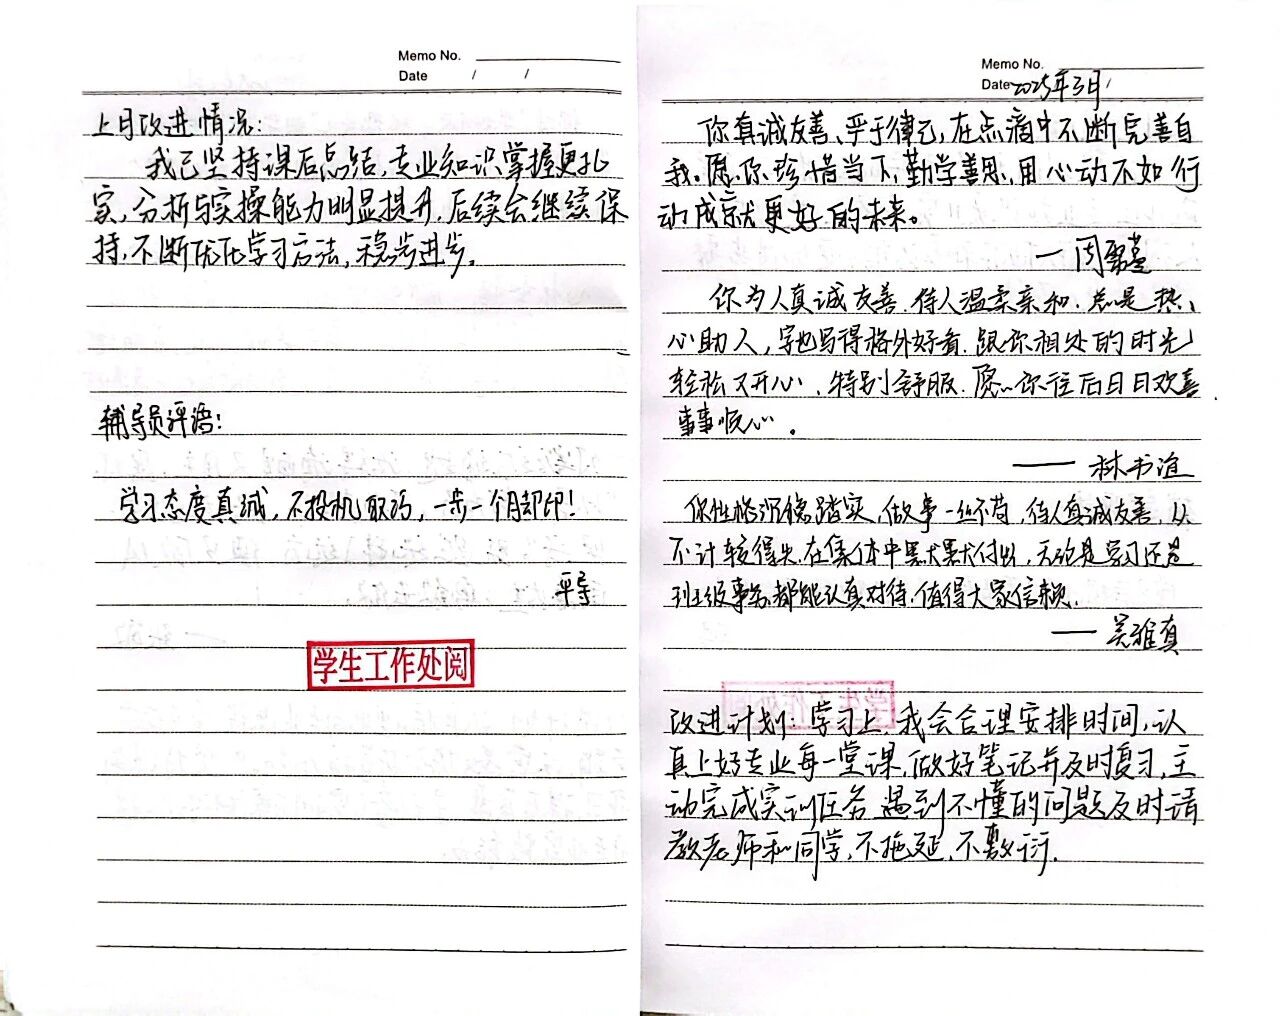 Memo No.
Date / /
上月改进情况:
我已坚持课后总结,专业知识掌握更扎
实,分析与实操能力明显提升,后续会继续保
持,不断优化学习方法,稳步进步。
辅导员评语:
学习态度真诚,不投机取巧,一步一个脚印!
平导
学生工作处阅
Memo No.
Date 2025年3月
你真诚友善、严于律己,在点滴中不断完善自
我。愿你珍惜当下,勤学善思,用心动不如行
动成就更好的未来。
—周
你为人真诚友善.待人温柔亲和.总是热
心助人,字也写得格外好看.跟你相处的时光
轻松又开心,特别舒服.愿你往后日日欢喜
事事顺心。
——林书谊
你性格沉稳踏实,做事一丝不苟,待人真诚友善,从
不计较得失.在集体中默默付出,无论是学习还是
班级事务都能认真对待.值得大家信赖.
——吴雅真
改进计划:学习上,我会合理安排时间,认
真上好专业每一堂课,做好笔记并及时复习,主
动完成实训任务 遇到不懂的问题及时请
教老师和同学,不拖延,不敷衍.